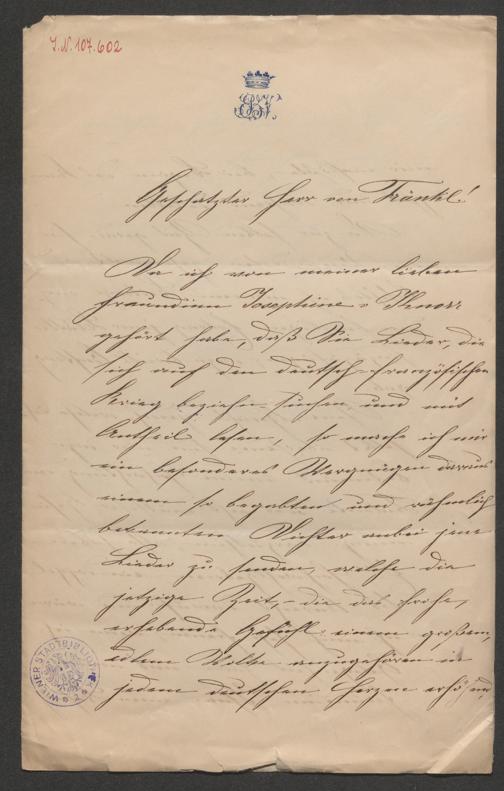 J.N. 107.602
Geschätzter Herr von Fränkl!
Da ich von meiner lieben
Freundinn Josephine v Knorr
gehört habe, daß Sie Lieder, die
sich auf den deutsch-französischen
Krieg beziehn suchen und mit
Antheil lesen, so mache ich mir
ein besonderes Vergnügen daraus
einem so begabten und rühmlich
bekannten Dichter anbei jene
Lieder zu senden, welche die
jetzige Zeit, – die das frohe,
erhebende Gefühl einem großen,
edlem Volke anzugehören in
jedem deutschen Herzen
WIENER STADTBIBLIOTHEK